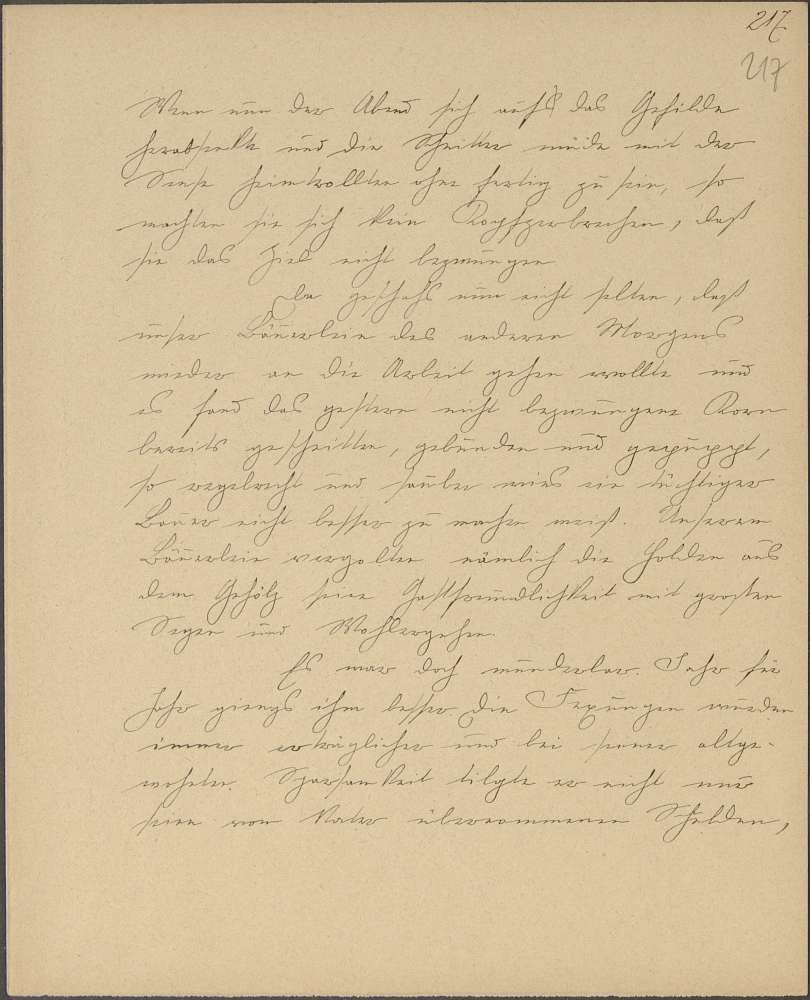 217
217
Wenn nun der Abend sich aufs das Gefilde
herabsenkte und die Schnitter müde mit der
Sense heimwollten ohne fertig zu sein, so
machten sie sich kein Kopfzerbrechen, daß
sie das Ziel nicht bezwungen
Da geschahs nun nicht selten, daß
unser Bäuerlein des anderen Morgens
wieder an die Arbeit gehen wollte und
es fand das gestern nicht bezwungene Korn
bereits geschnitten, gebunden und gepuppt,
so regelrecht und sauber wies ein tüchtiger
Bauer nicht besser zu machen weiß. Unserem
Bäuerlein vergolten nämlich die Holden aus
dem Gehölz seine Gastfreundlichkeit mit großen
Segen und Wohlergehen.
Es war doch wunderbar. Jahr für
Jahr giengs ihm besser, die Fexungen wurden
immer erträglicher und bei seiner altge-
wohnten Sparsamkeit tilgte er nicht nur
seine vom Vater übernommenen Schulden,